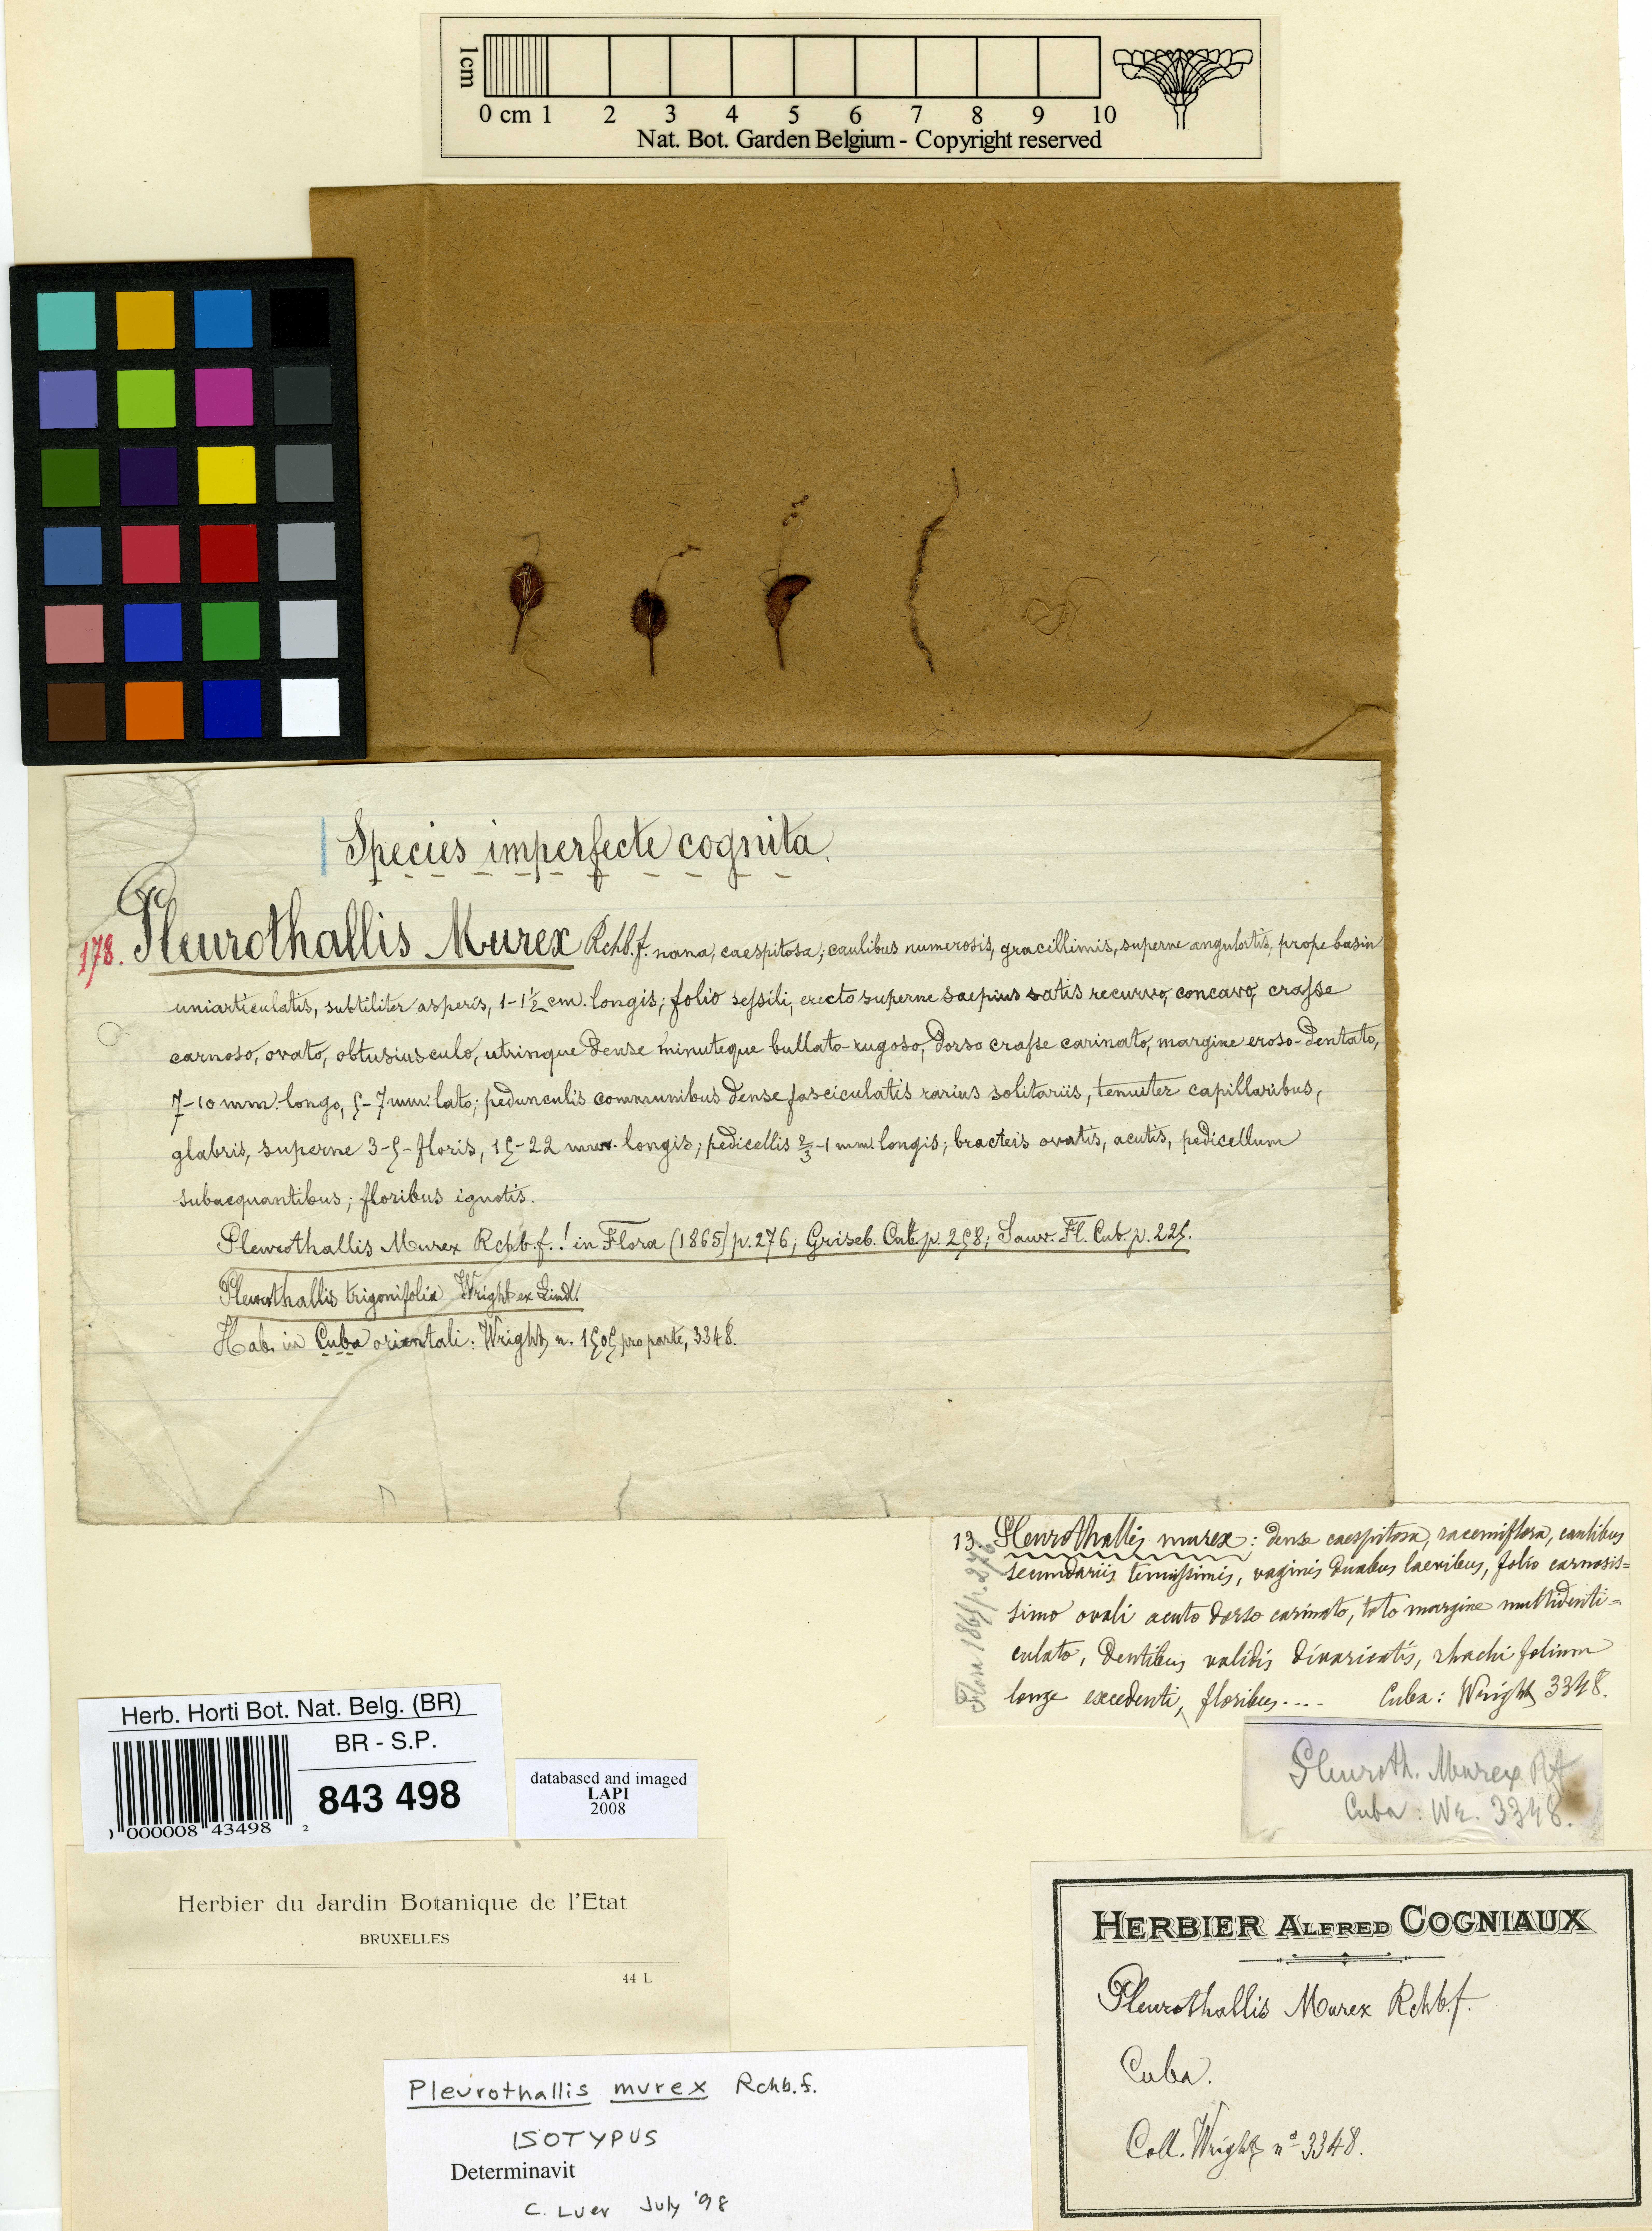 1cm
0 cm 1 2 3 4 5 6 7 8 9 10
Nat. Bot. Garden Belgium - Copyright reserved
Species imperfecte cognita.
178. Pleurothallis Murex Rchb.f. nana, caespitosa; caulibus numerosis, gracillimis, superne angulatis, prope basin
uniarticulatis, subtiliter asperis, 1-1½ cm. longis; folio sessili, erecto superne saepius satis recurvo, concavo, crasse
carnoso, ovato, obtusiusculo, utrinque dense minuteque bullato-rugoso, dorso crasse carinato, margine eroso-dentato,
7-10 mm. longo, 5-7 mm. lato; pedunculis communibus dense fasciculatis rarius solitariis, tenuiter capillaribus,
glabris, superne 3-5-floris, 15-22 mm. longis; pedicellis ⅔-1 mm. longis; bracteis ovatis, acutis, pedicellum
subaequantibus; floribus ignotis.
Pleurothallis Murex Rchb.f.! in Flora (1865) p. 276; Griseb. Cat. p. 258; Sauv. Fl. Cub. p. 225.
Pleurothallis trigonifolia Wright ex Lindl.
Hab. in Cuba orientali: Wright n. 1505 pro parte, 3348.
13. Pleurothallis murex: dense caespitosa, racemiflora, caulibus
secundariis tenuissimis, vaginis duabus laevibus, folio carnosis=
simo ovali acuto dorso carinato, toto margine multidenti=
culato, dentibus validis divaricatis, rhachi folium
longe excedenti, floribus.... Cuba: Wright 3348.
Flora 1865 p. 276
Pleuroth. Murex Rf
Cuba: Wr. 3348.
Herb. Horti Bot. Nat. Belg. (BR)
BR - S.P.
843 498
0 000008 43498 2
databased and imaged
LAPI
2008
Herbier du Jardin Botanique de l'Etat
BRUXELLES
44 L
HERBIER ALFRED COGNIAUX
Pleurothallis Murex Rchb.f.
Cuba.
Coll. Wright nº 3348.
Pleurothallis murex Rchb.f.
ISOTYPUS
Determinavit
C. Luer July '98